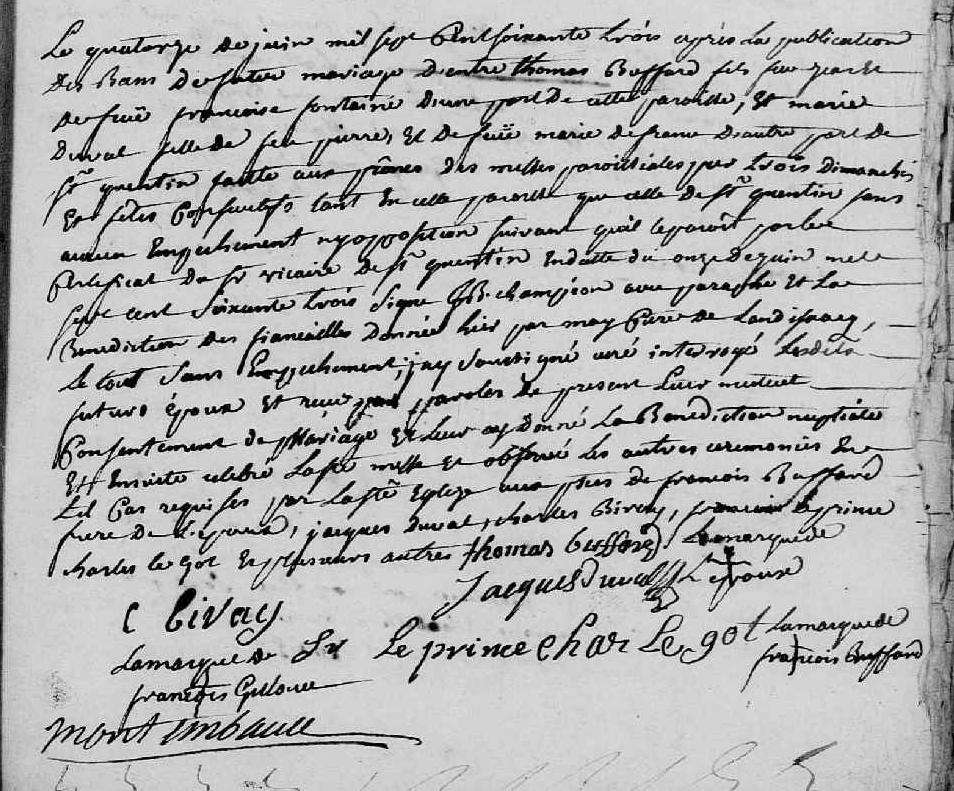 Le quatorze de juin mil sept Cent soixante trois après La publication
des Bans de futur mariage D'entre thomas Buffard fils feu et
de fuë françoise fontaine D'une part De cette paroisse, Et marie
Duval fille de feu pierre, Et De fuë marie defrance D'autre part de
St quentin faitte aux prônes des messes paroissiales par trois Dimanches
Et fêtes Consecutifs tant En cette paroisse que celle de St quentin sans
aucun Empechement ny opposition suivant qu'il le paroît par le
Certificat du Sr vicaire de St quentin En datte du onze de juin mil
sept cent soixante trois Signé champion avec paraphe Et La
Benediction des fiancailles Donnée hier par moy Curé de Landisacq,
Le tout sans Empechement, j'ay soussigné curé interrogé Lesdits
futurs époux Et recu par paroles de present Leur mutuel
Consentement de Mariage Et Leur ay Donné La Benediction nuptiale
Et Ensuite celebré La ste messe et observé Les autres ceremonies En
tel Cas requises par La ste Eglize aux pres de francois Buffard
frere De L'epoux, jacques duval, charles Bivay, francois Leprince
charles le got Et plusieurs autres thomas buffard Lamarque de
Jacques Duval L'epouse
C bivay
Lamarque de Le prince Char Le got Lamarque de
françois francois Buffard
montimbault